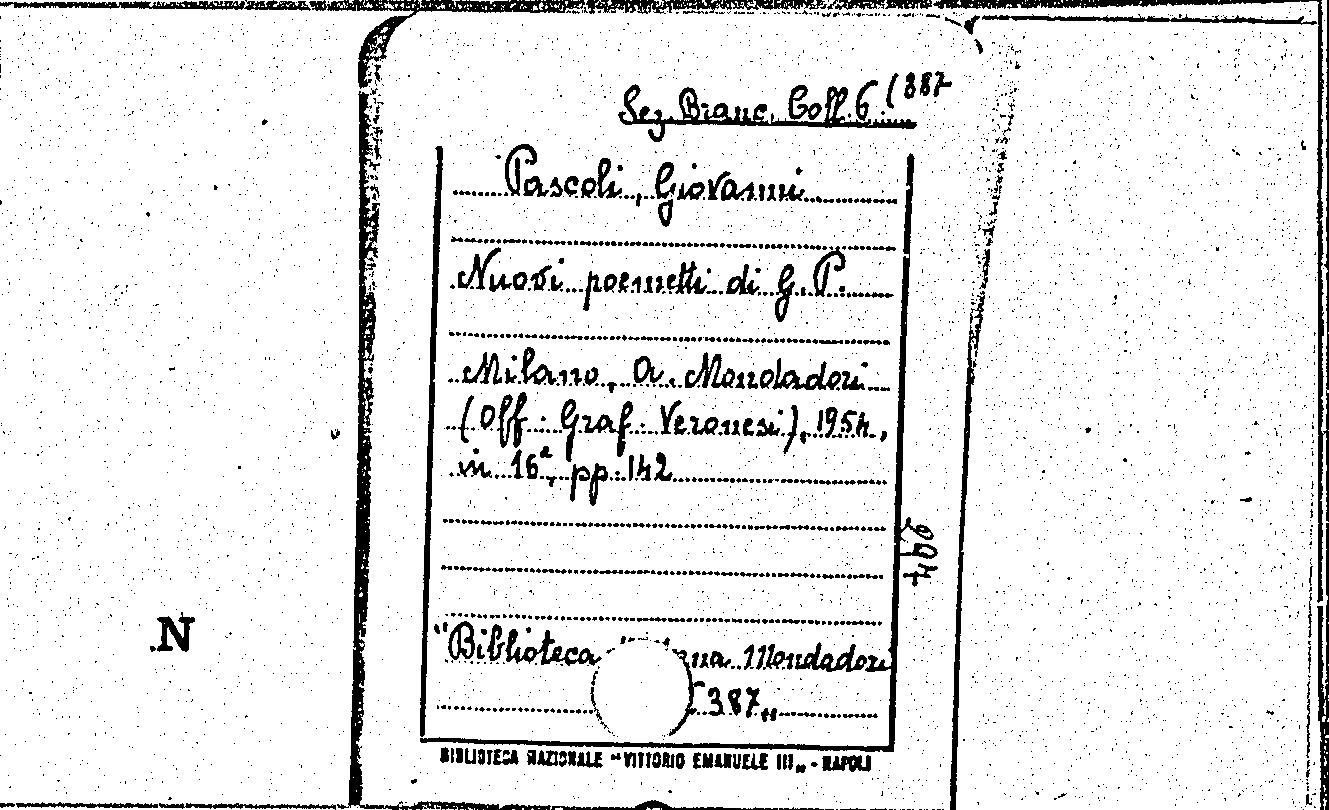 Sez. Branc. Coll. 6 (387
Pascoli, Giovanni
Nuovi poemetti di G. P.
Milano, A. Mondadori
(Off. Graf. Veronesi), 1954,
in 16°, pp. 142
704
"Biblioteca Mondadori
387"
N
BIBLIOTECA NAZIONALE "VITTORIO EMANUELE III" - NAPOLI